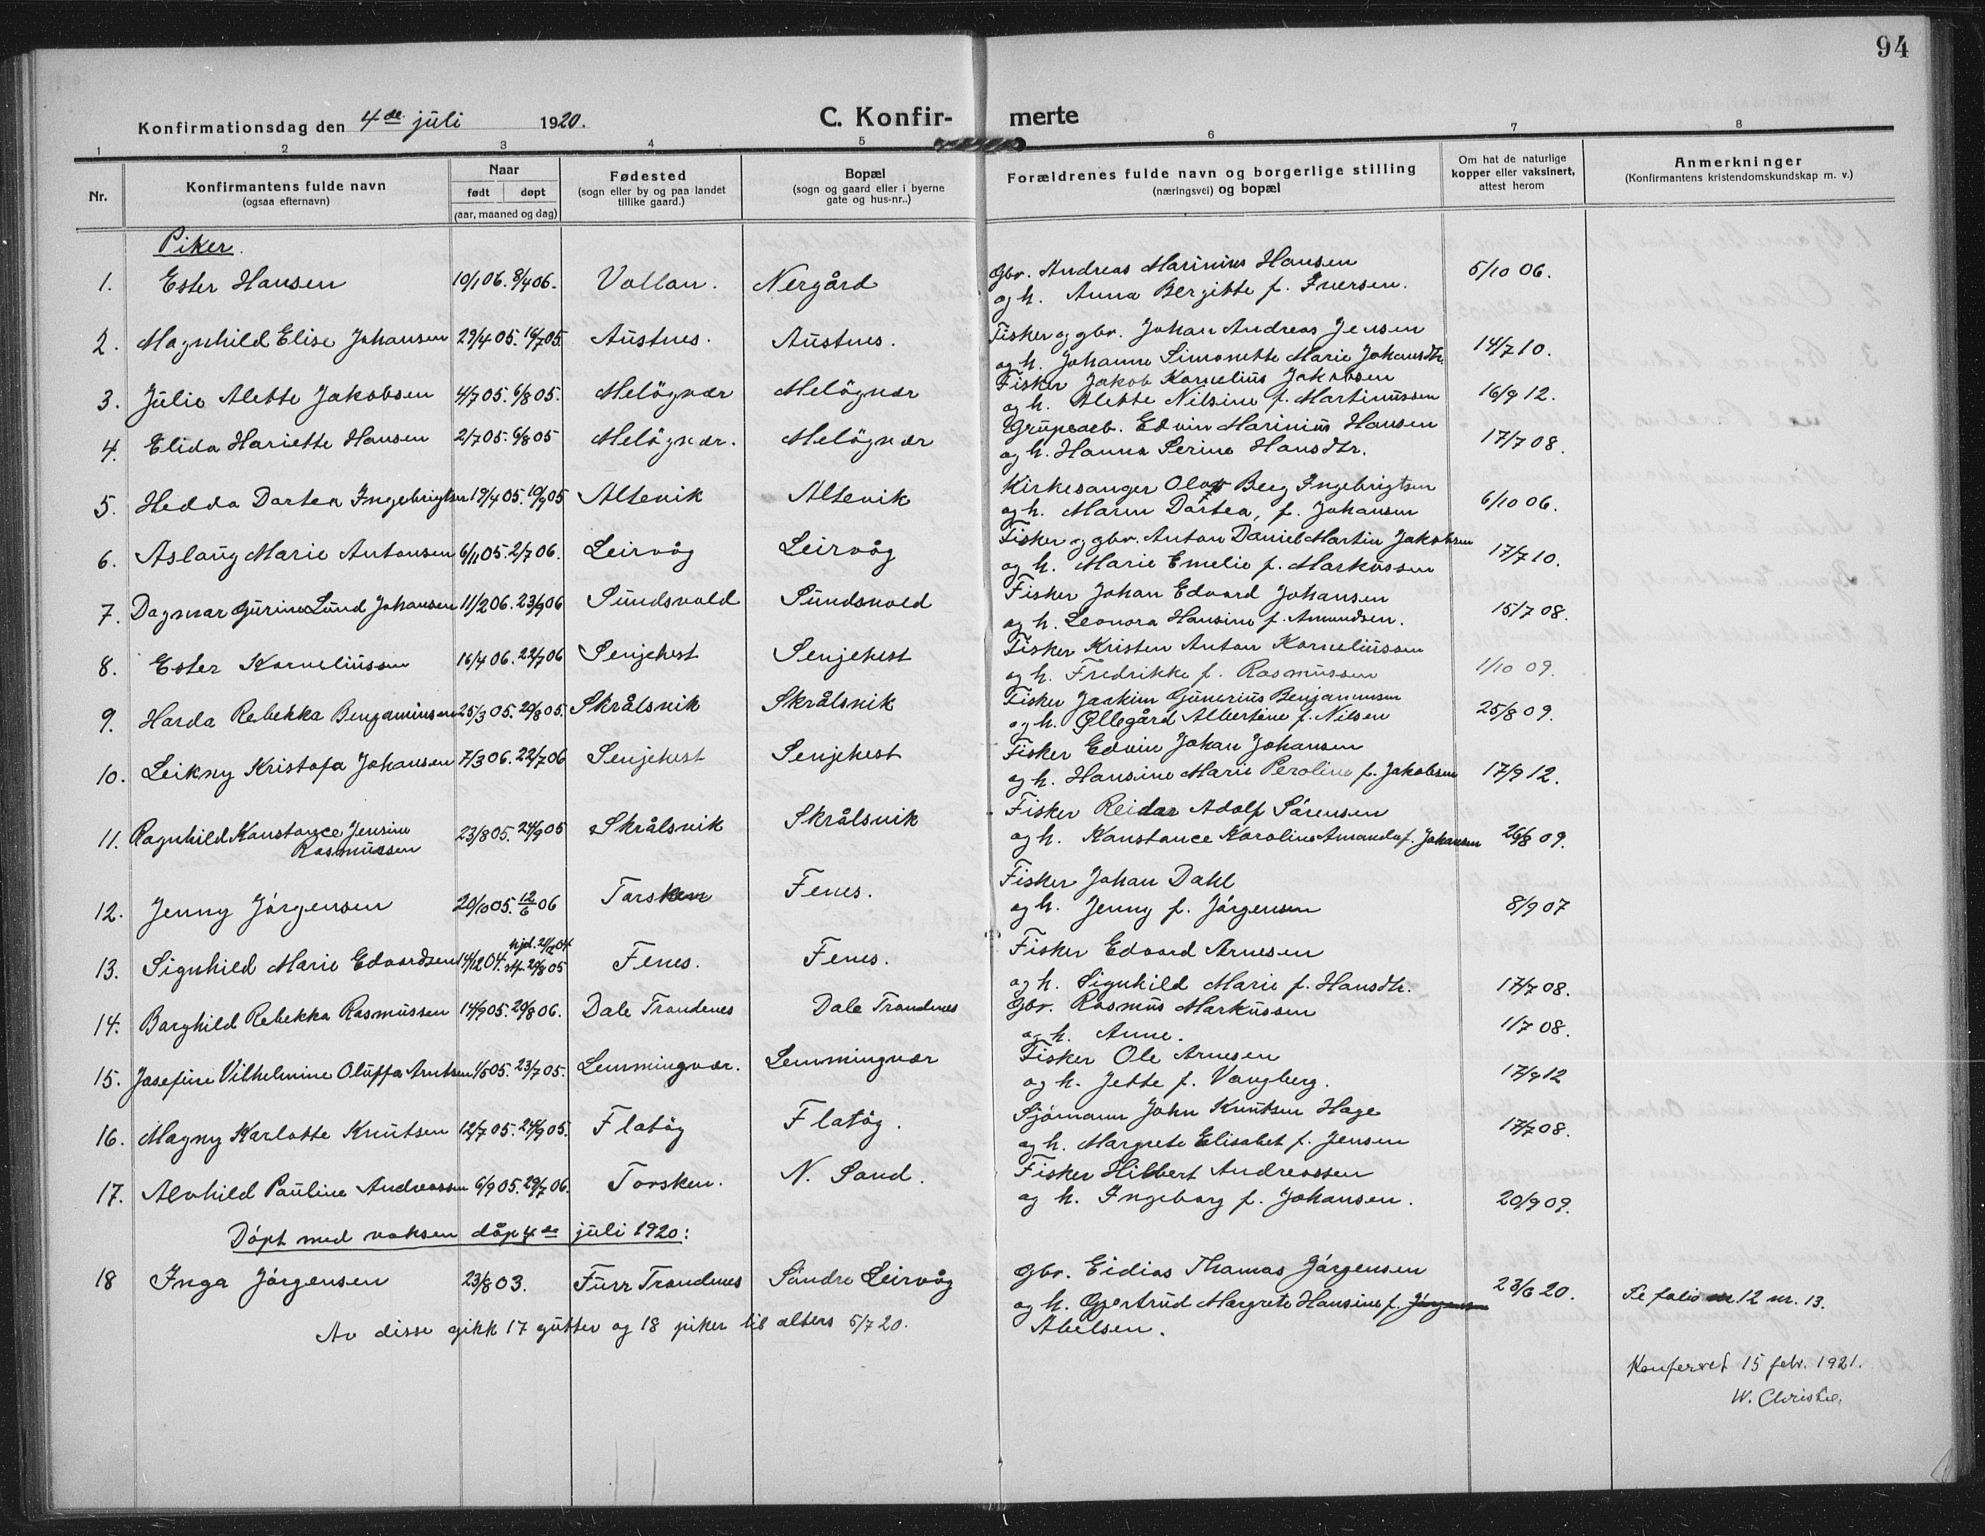 94
Konfirmationsdag den 4de juli 1920. C. Konfir- merte
1 2 3 4 5 6 7 8
Nr. Konfirmantens fulde navn (ogsaa efternavn) Naar født døpt (aar, maaned og dag) Fødested (sogn eller by og paa landet tillike gaard.) Bopæl (sogn og gaard eller i byerne gate og hus-nr..) Forældrenes fulde navn og borgerlige stilling (næringsvei) og bopæl Om hat de naturlige kopper eller vaksinert, attest herom Anmerkninger (Konfirmantens kristendomskundskap m. v.)
Piker.
1. Ester Hansen 10/1 06. 8/4 06. Vollan. Nergård Gbr. Andreas Marinius Hansen 5/10 06.
og h. Anna Bergitte f. Iversen.
2. Magnhild Elise Johansen 29/4 05. 16/7 05 Austnes. Austnes. Fisker og gbr. Johan Andreas Jensen 14/7 10.
og h. Johanne Simonette Marie Johansdtr.
3. Julie Alette Jakobsen 4/7 05. 6/8 05. Melögvær Melögvær Fisker Jakob Kornelius Jakobsen 16/9 12.
og h. Alette Nilsine f. Martinussen
4. Elida Hariette Hansen 2/7 05. 6/8 05 Melögvær. Melögvær Grubearb. Edvin Marinius Hansen 17/7 08.
og h. Hanna Serine Hansdtr.
5. Hedda Dortea Ingebrigtsen 19/4 05. 10/9 05 Altevik Altevik Kirkesanger Olav Berg Ingebrigtsen 6/10 06.
og h. Maren Dortea, f. Johansen
6. Aslaug Marie Antonsen 6/11 05. 2/7 06. Leirvåg Leirvåg Fisker og gbr. Anton Daniel Martin Jakobsen 17/7 10.
og h. Marie Emelie f. Markussen
7. Dagmar Gurine Lund Johansen 11/2 06. 23/9 06 Sundsvold Sundsvold Fisker Johan Edvard Johansen 15/7 08.
og h. Leonora Hansine f. Amundsen.
8. Ester Korneliussen 16/4 06. 22/7 06 Senjehest Senjehest Fisker Kristen Anton Korneliussen
og h. Fredrikke f. Rasmussen 1/10 09.
9. Harda Rebekka Benjaminsen 25/3 05. 20/8 05. Skrålsvik Skrålsvik Fisker Joakim Gunerius Benjaminsen 25/8 09.
og h. Øllegård Albertine f. Nilsen
10. Leikny Kristofa Johansen 7/3 06. 22/7 06 Senjehest Senjehest Fisker Edvin Johan Johansen
og h. Hansine Marie Peroline f. Jakobsen 17/9 12.
11. Ragnhild Konstance Jensine 23/8 05. 24/9 05 Skrålsvik Skrålsvik Fisker Reidar Adolf Sörensen
Rasmussen og h. Konstance Karoline Amanda f. Johansen 26/8 09.
12. Jenny Jörgensen 20/10 05. 12/6 06 Torsken Fenes. Fisker Johan Dahl
og h. Jenny f. Jörgensen 8/9 07
13. Signhild Marie Edvardsen 14/12 04. hjd. 21/12 04. 20/8 05 Fenes. Fenes. Fisker Edvard Arnesen
og h. Signhild Marie f. Hansdtr. 17/7 08.
14. Borghild Rebekka Rasmussen 14/9 05. 20/8 06. Dale Trondenes Dale Trondenes Gbr. Rasmus Markussen 1/7 08.
og h. Anne.
15. Josefine Vilhelmine Oluffa Arntsen 1/5 05. 23/7 05. Lemmingvær. Lemmingvær Fisker Ole Arnesen 17/9 12
og h. Jette f. Vangberg.
16. Magny Karlotte Knutsen 12/7 05. 24/9 05. Flatög Flatög. Sjömann John Knutsen Hage 17/7 08.
og h. Margrete Elisabet f. Jensen
17. Alvhild Pauline Andreassen 6/9 05. 29/7 06. Torsken. N. Sand. Fisker Hilbert Andreassen
og h. Ingeborg f. Johansen. 20/9 09.
Döpt med voksen dåp 4de juli 1920:
18 Inga Jörgensen 23/8 03. Furr Trondenes Söndre Leirvåg Gbr. Eidias Thomas Jörgensen 23/6 20. Se folio 12 nr. 13.
og h. Gjertrud Margrete Hansine f. Jörgensen
Abelsen.
Av disse gikk 17 gutter og 18 piker til alters 5/7 20.
Konferert 15 febr. 1921.
W. Christie.